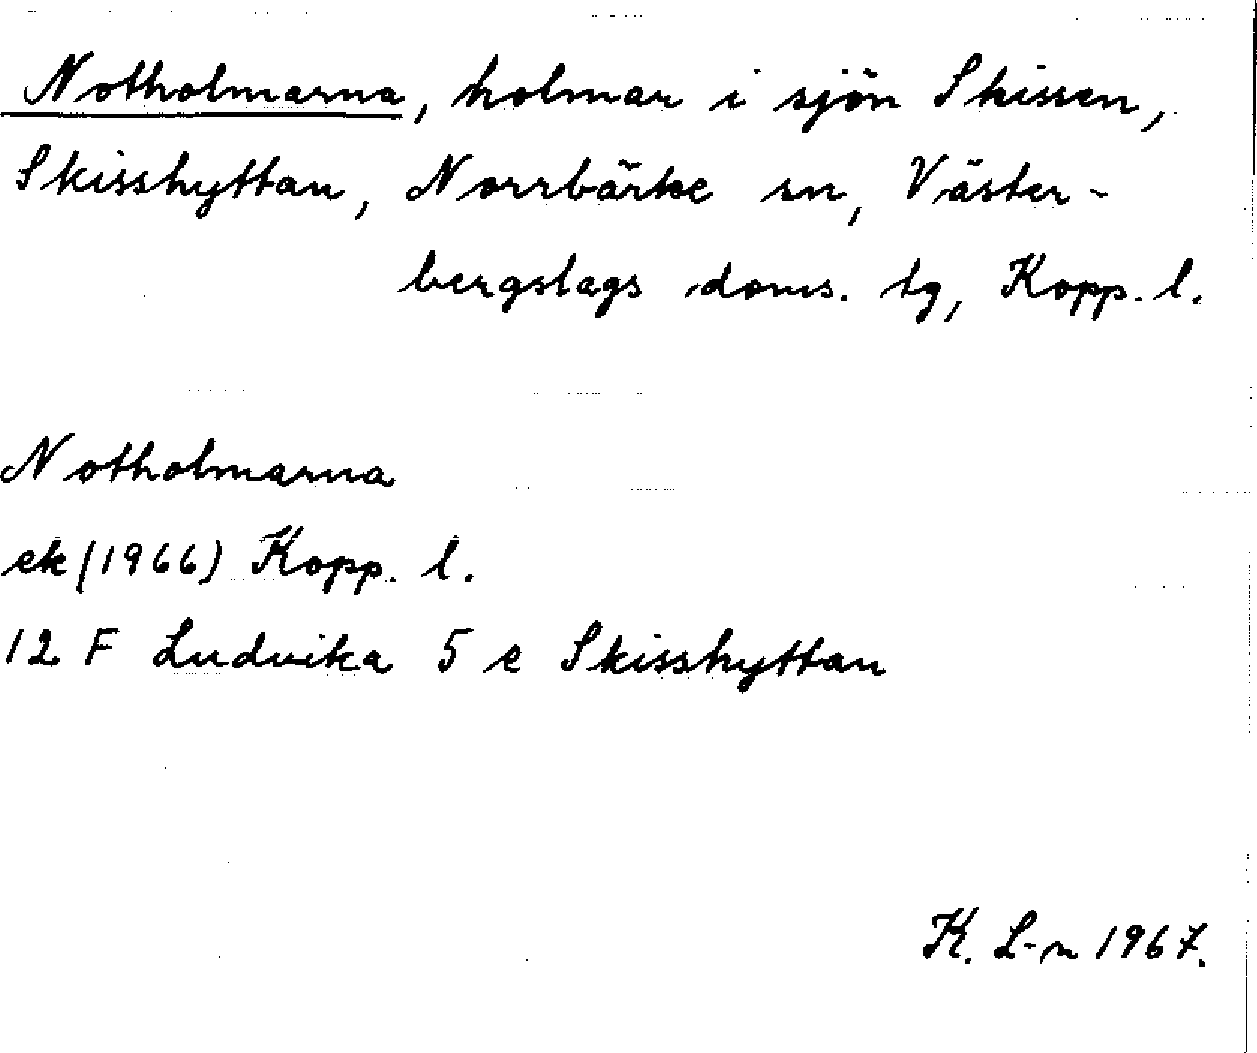 Notholmarna, holmar i sjön Skissen,
Skisshyttan, Norrbärke sn, Väster-
bergslags doms. tg, Kopp. l.
Notholmarna
ek (1966) Kopp. l.
12 F Ludvika 5 e Skisshyttan
K. L-n 1967.